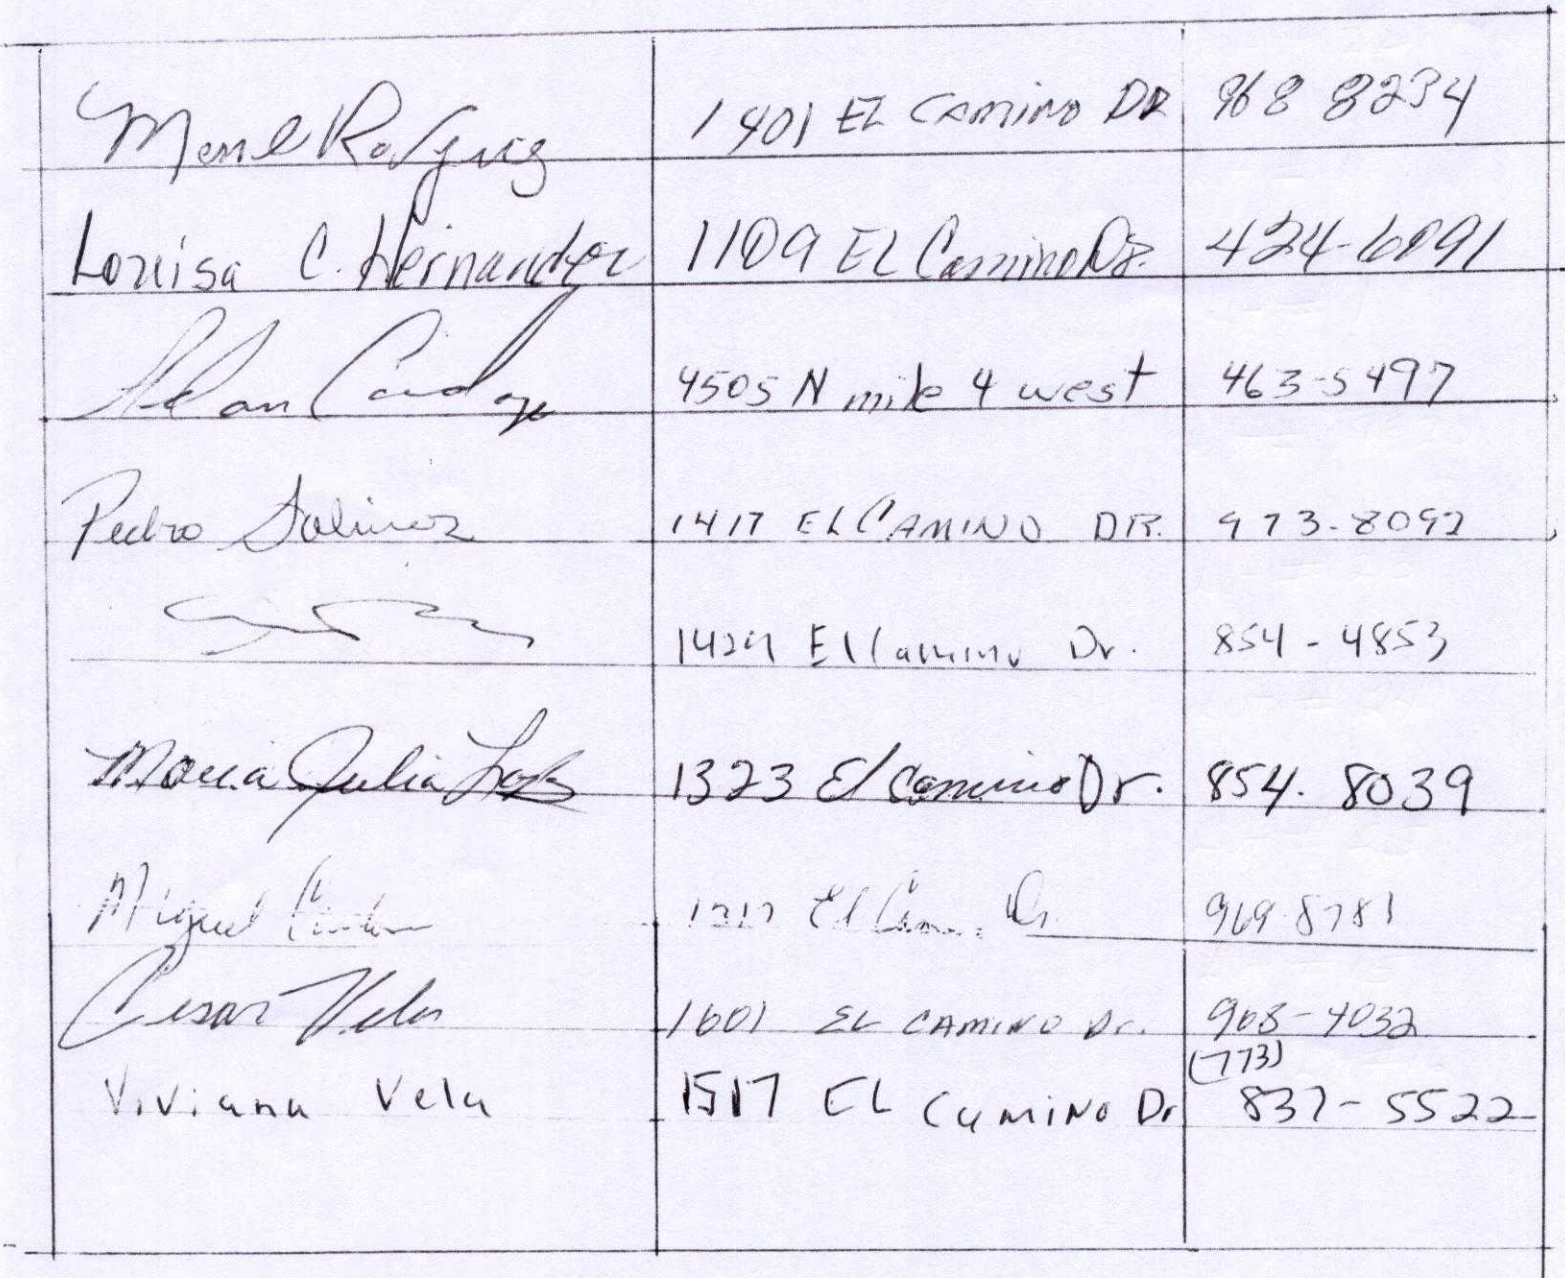 Rodriguez 1401 EL CAMINO DR 968 8234
Louisa C. Hernandez 1109 EL Camino Dr. 424-6091
4505 N mile 4 west 463-5497
Pedro Salinas 1417 EL CAMINO DR. 973-8092
1429 El Camino Dr. 854-4853
Maria Julia 1323 El Camino Dr. 854. 8039
Miguel 1317 El Dr. 969 8781
Cesar Vela 1601 EL CAMINO Dr. 968-4032
(773)
Viviana Vela 1517 EL CAMINO Dr 837-5522